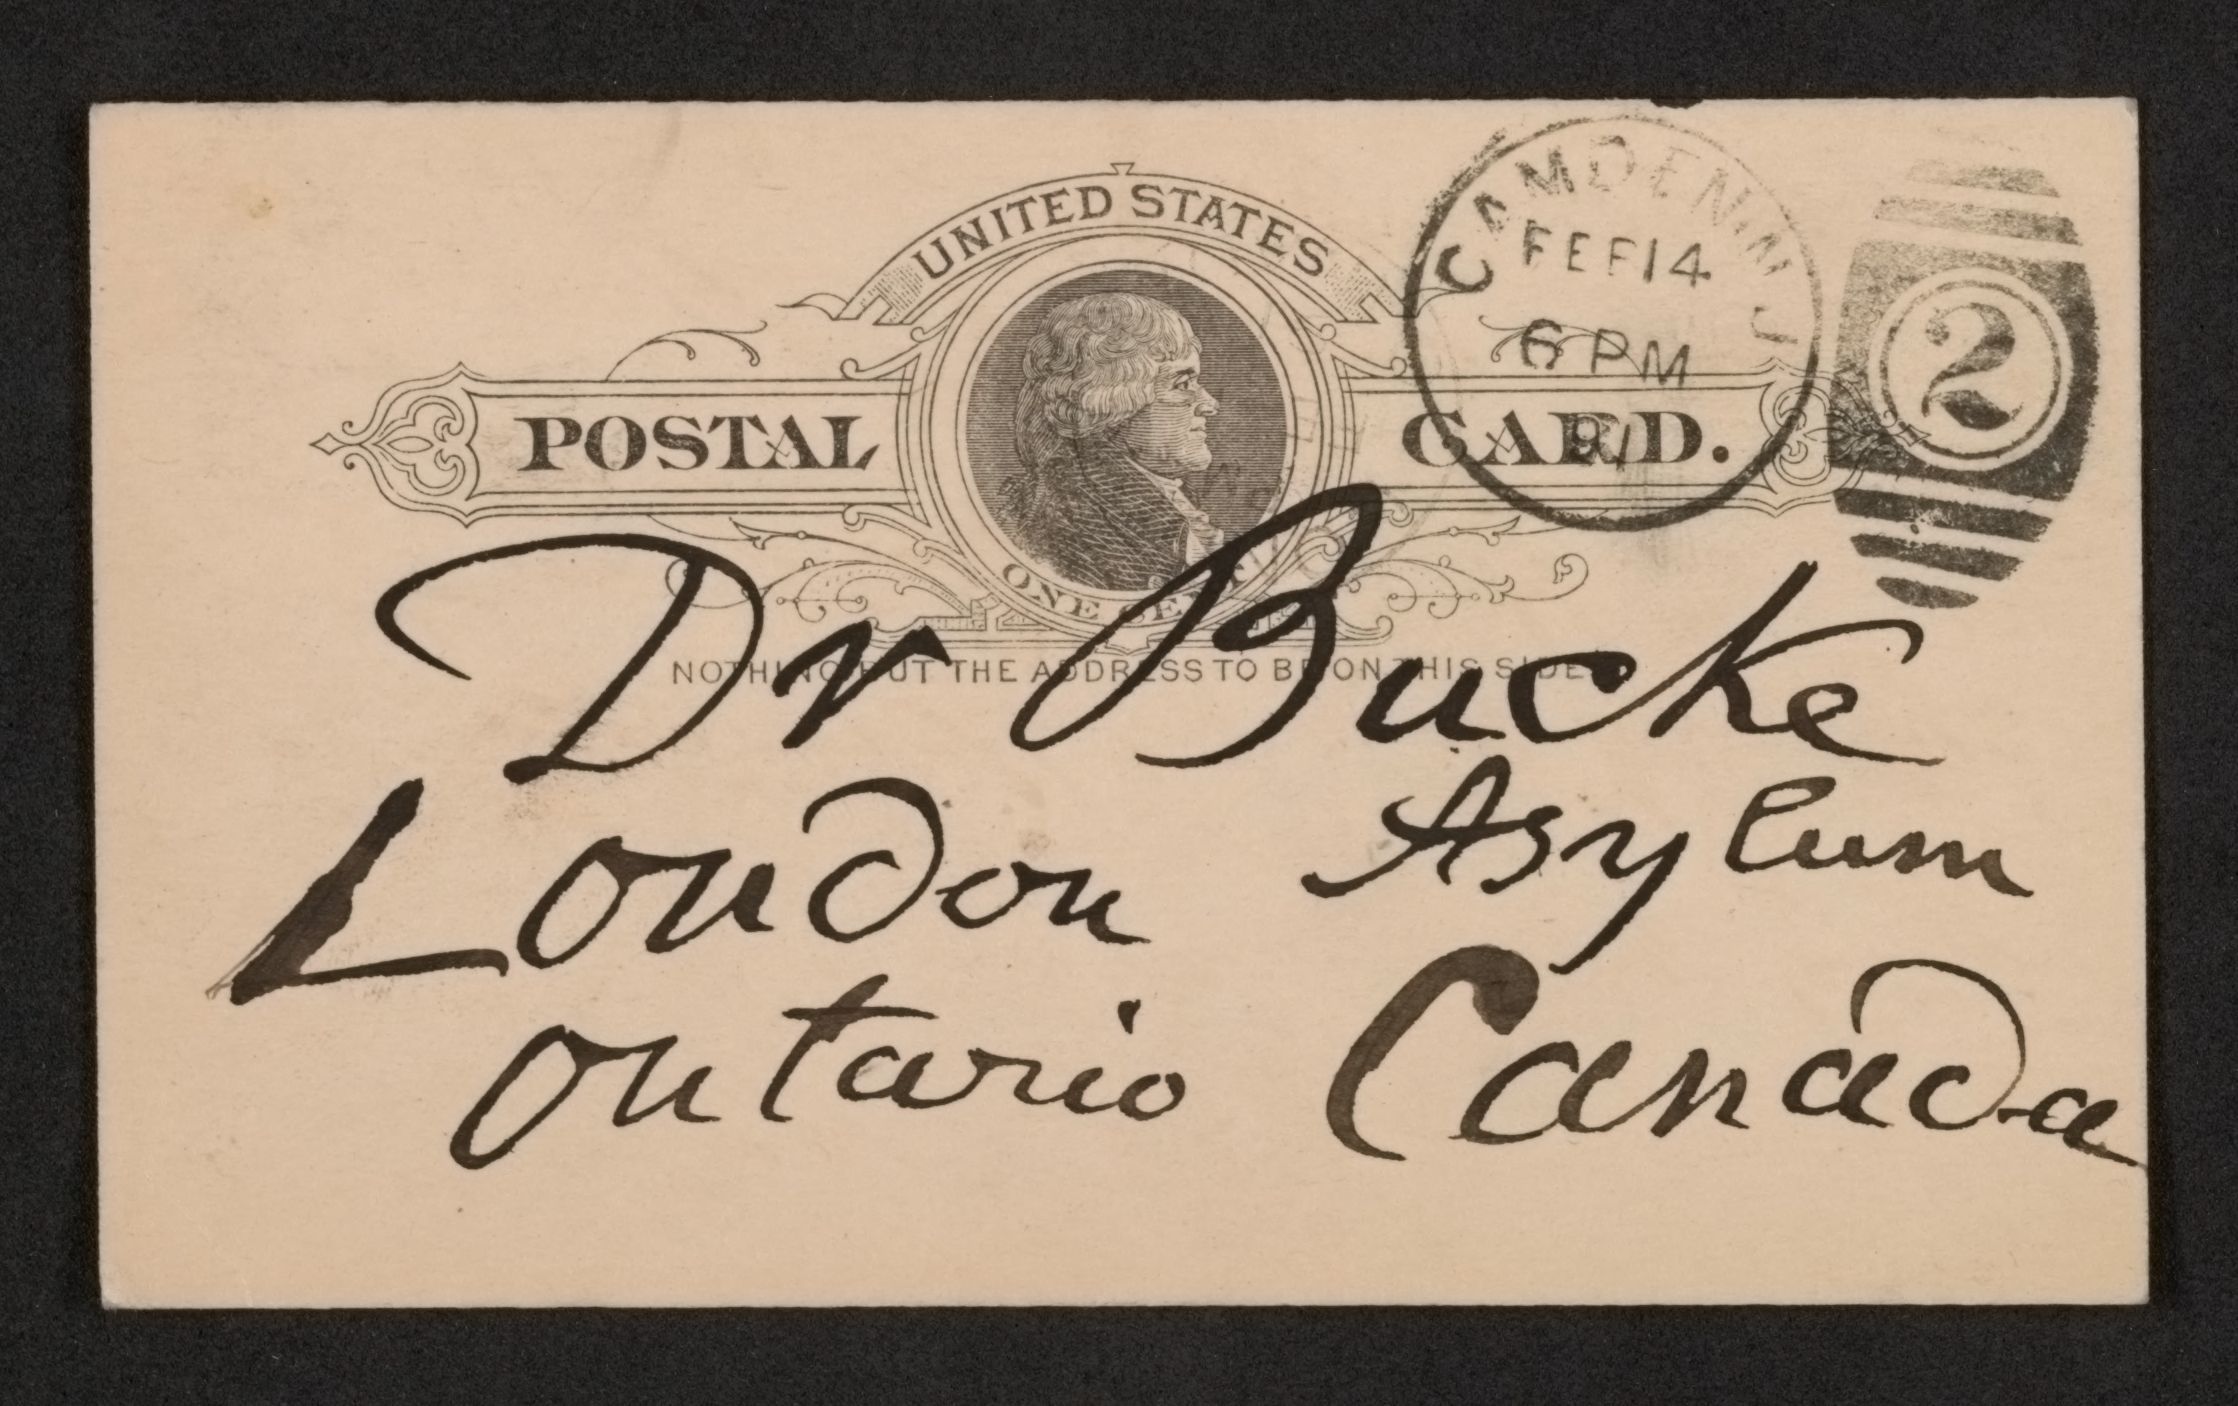 UNITED STATES
POSTAL CARD.
ONE CENT
NOTHING BUT THE ADDRESS TO BE ON THIS SIDE
CAMDEN N J
FEB 14
6 PM
91
2
Dr Bucke
Asylum
London
Ontario Canada